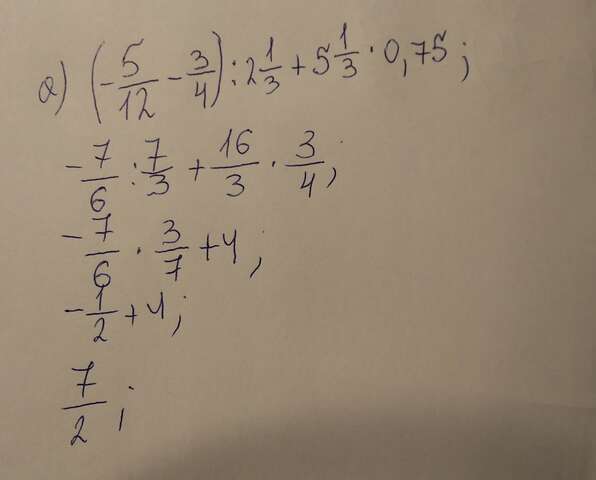 a) (-5/12 - 3/4) : 2 1/3 + 5 1/3 · 0,75;
-7/6 : 7/3 + 16/3 · 3/4;
-7/6 · 3/7 + 4;
-1/2 + 4;
7/2;